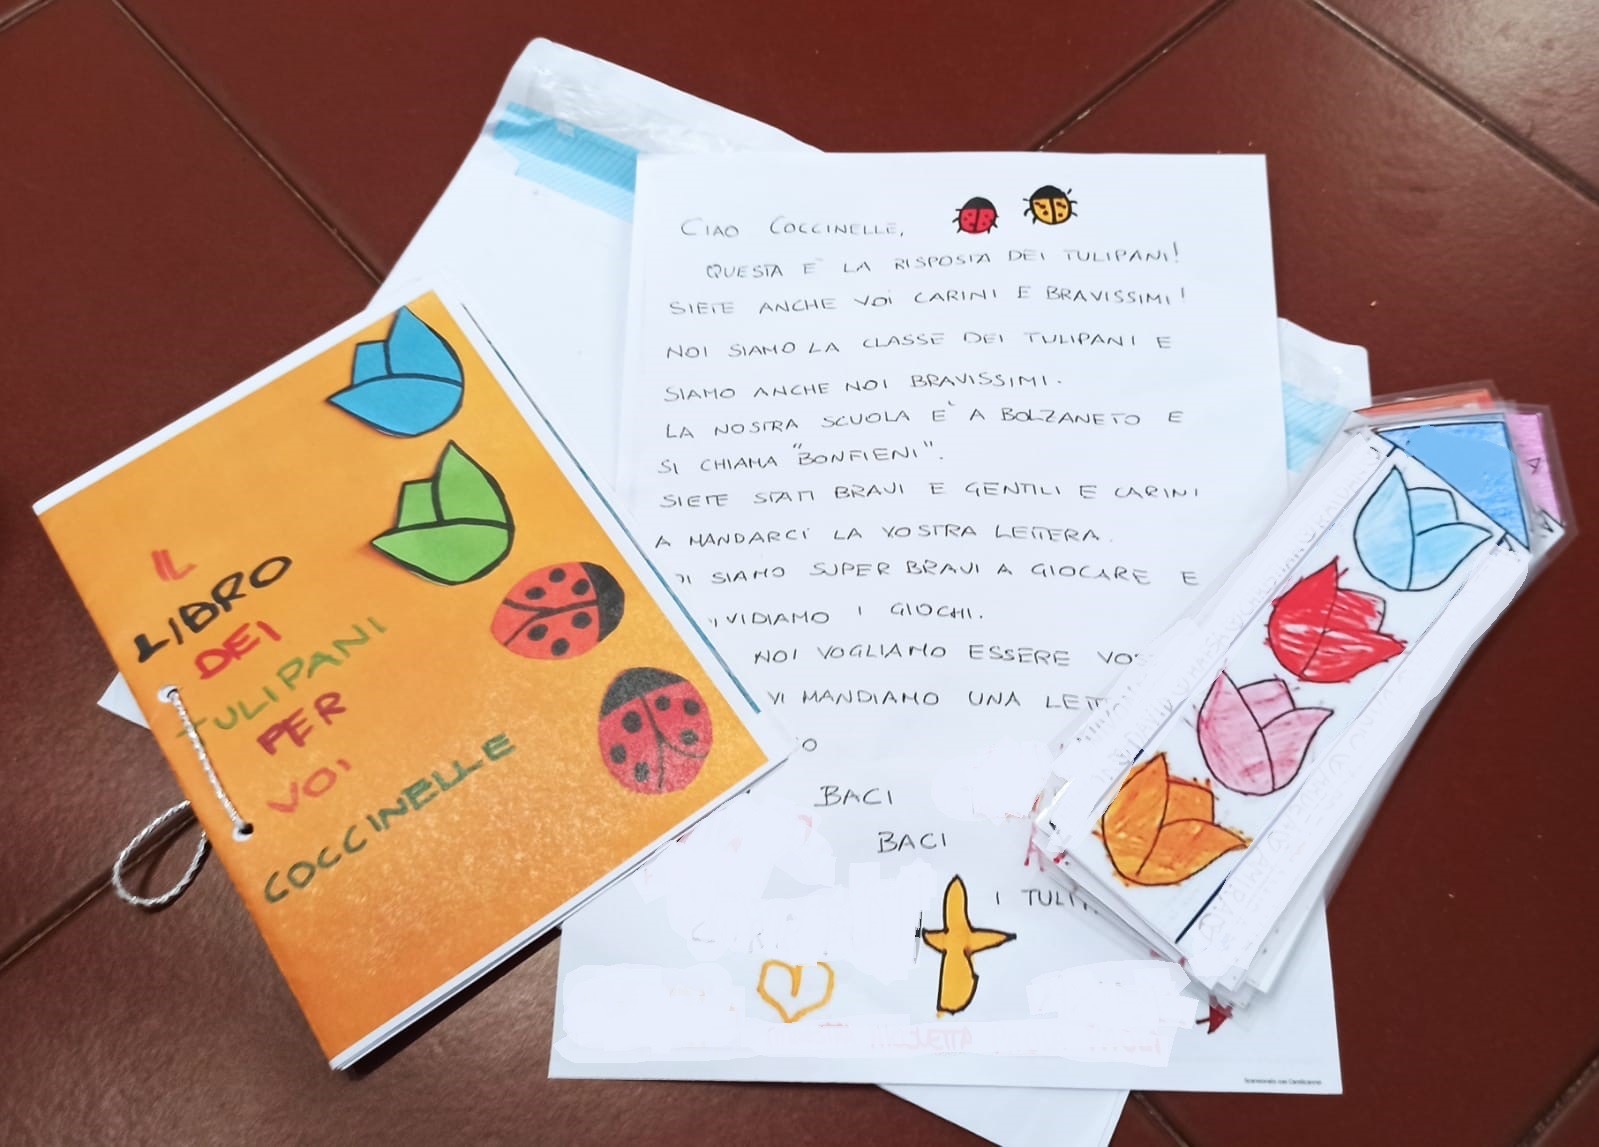 IL
LIBRO
DEI
TULIPANI
PER
VOI
COCCINELLE
CIAO COCCINELLE,
QUESTA E' LA RISPOSTA DEI TULIPANI!
SIETE ANCHE VOI CARINI E BRAVISSIMI!
NOI SIAMO LA CLASSE DEI TULIPANI E
SIAMO ANCHE NOI BRAVISSIMI.
LA NOSTRA SCUOLA E' A BOLZANETO E
SI CHIAMA "BONFIENI".
SIETE STATI BRAVI E GENTILI E CARINI
A MANDARCI LA VOSTRA LETTERA.
SIAMO SUPER BRAVI A GIOCARE E
I GIOCHI.
NOI VOGLIAMO ESSERE
VI MANDIAMO UNA
BACI
BACI
I
Scansionato con CamScanner